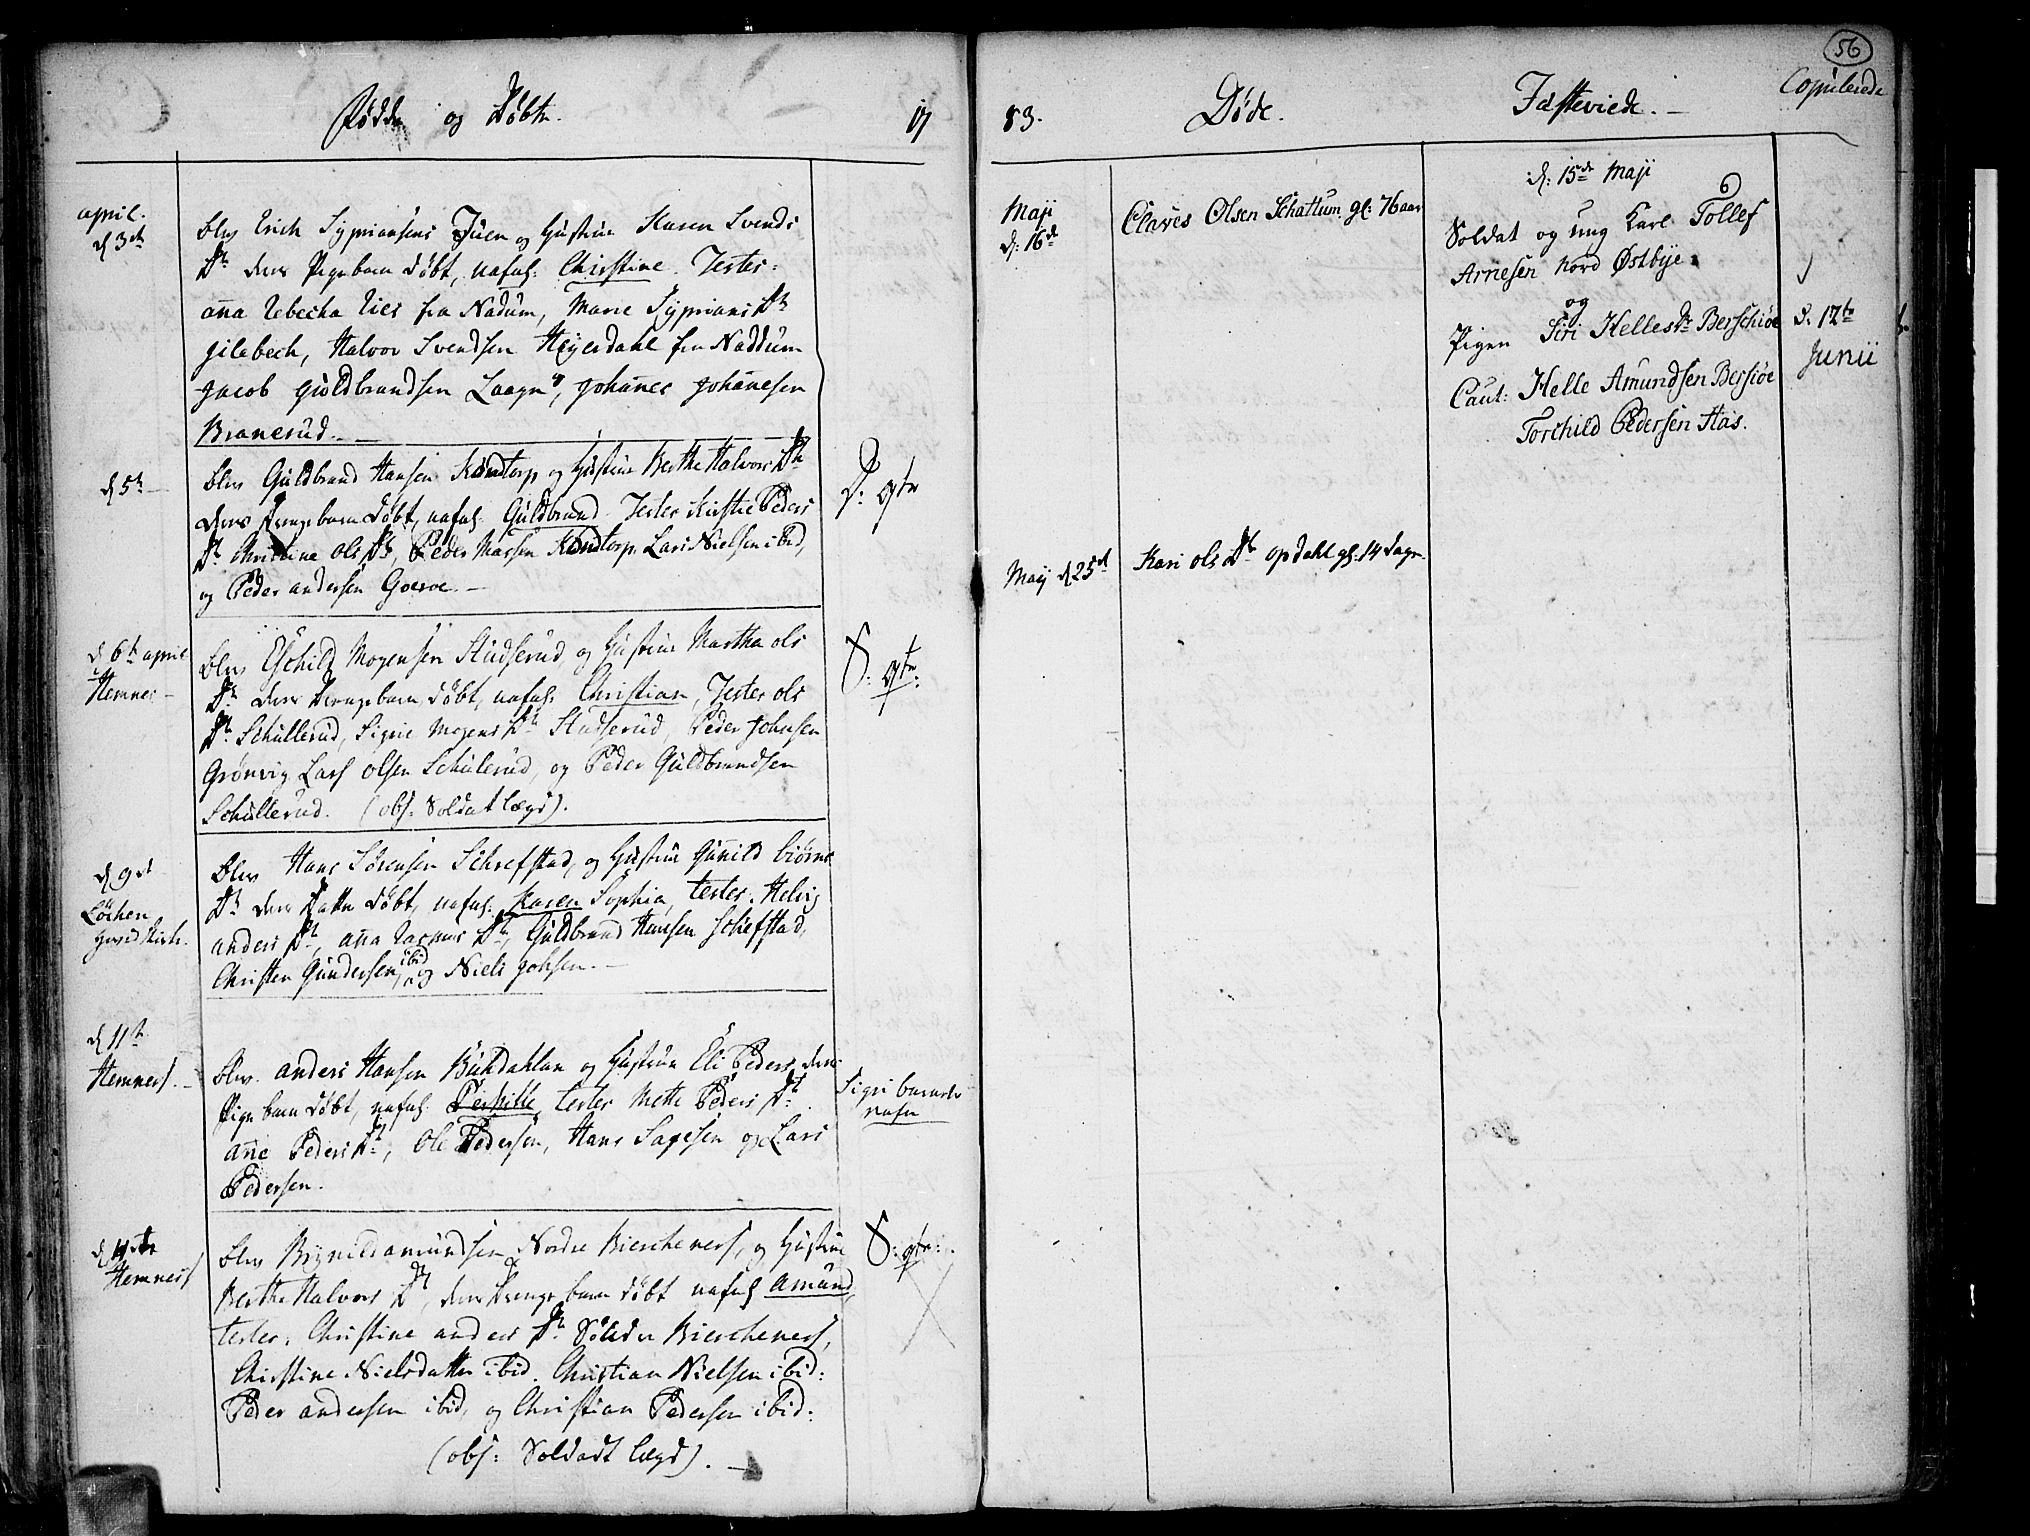 Fødde og Døbte.
17
april.
d 3de
blev Erich Sypriansens Juen og Hustrue Karen Svends
Dtr deres Pigebarn døbt, nafnl: Christine. Testes:
aña Rebecha Ries fra Nadum, Marie Syprians Dtr
Gilebech, Halvor Svendsen Heyerdahl fra Naddum
Jacob Guldbrandsen Laagne, Johañes Johañesen
Branerud. —
d 5te —
blev Guldbrand Hansen Komtorp og Hustrue Berthe Halvors Dtr
deres Drengebarn døbt, nafnl. Guldbrand. Testes Kirstie Peders
Dtr Christine Ols Dtr, Peder Larsen Komtorp Lars Nielsen ibid,
og Peder andersen Goerve. —
d 6te april
Hemnes —
blev Eschild Mogensen Studserud, og Hustrue Martha ols
Dtr deres Drengebarn døbt, nafnl. Christian, Testes ols
Dtr. Schullerud, Sigrie Mogens Dtr Studserud, Peder Johnsen
Grønvig Lars olsen Schulerud, og Peder Guldbrandsen
Schullerud. (obs: Soldat lægd).
d 9de
Løchen
blev Hans Sørensen Schrefstad, og Hustrue Guñild biørns
Dtr deres Datter døbt, nafnl: Karen Sophia, testes. Helvig
anders Dtr, aña Rasmus Dtr, Guldbrand Hansen Schefstad,
Christen Gundersen ibid og Niels Johsen. —
d 11te
Hemness. —
blev. anders Hansen Buhdahlen og Hustrue Eli Peders, deres
Pigebarn døbt, nafnl. Pernille, testes Mette Peders Dtr.
añe Peders Dtr, Ole Pedersen, Hans Sagesen og Lars
Pedersen.
Sigri barnets
nafn
Hemness
blev Brynild amundsen Nordre Biercheness, og Hustrue
Berthe Halvors Dtr, deres Drengebarn døbt nafnl amund,
testes, Christine anders Dtr Sølder Biercheness,
Christine Nielsdatter ibid. Christian Nielsen ibid:
Peder andersen ibid, og Christian Pedersen ibid:
(obs: Soldadt lægd). —
56
83.
Døde.
Fæsteviede. —
Copulerede
Maji
d: 16de
Claves Olsen Schattum gl: 76 aar
May d 25de
Kari ols Dtr opdahl gl: 14 dage.
d: 15de Maji
Soldat og ung Karl Tollef
Arnesen Nord Østbye
og
Pigen Siri Helles Dr Berschiøe
Caut: Helle Amundsen Bersiøe
Torchild Pedersen Has.
d. 12te
Junii